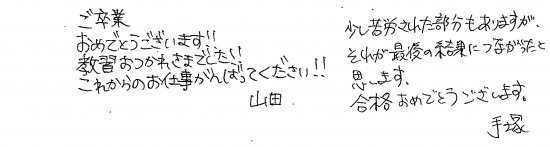 ご卒業
おめでとうございます!!
教習おつかれさまでした!!
これからのお仕事がんばってください!!
山田
少し苦労された部分もありますが、
それが最後の結果につながったと
思います。
合格おめでとうございます。
手塚